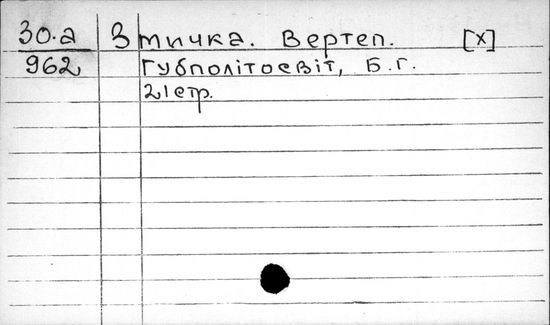 30.a Змичка. Вертеп. [х]
962 Губполітосвіт, Б.г.
21 стр.